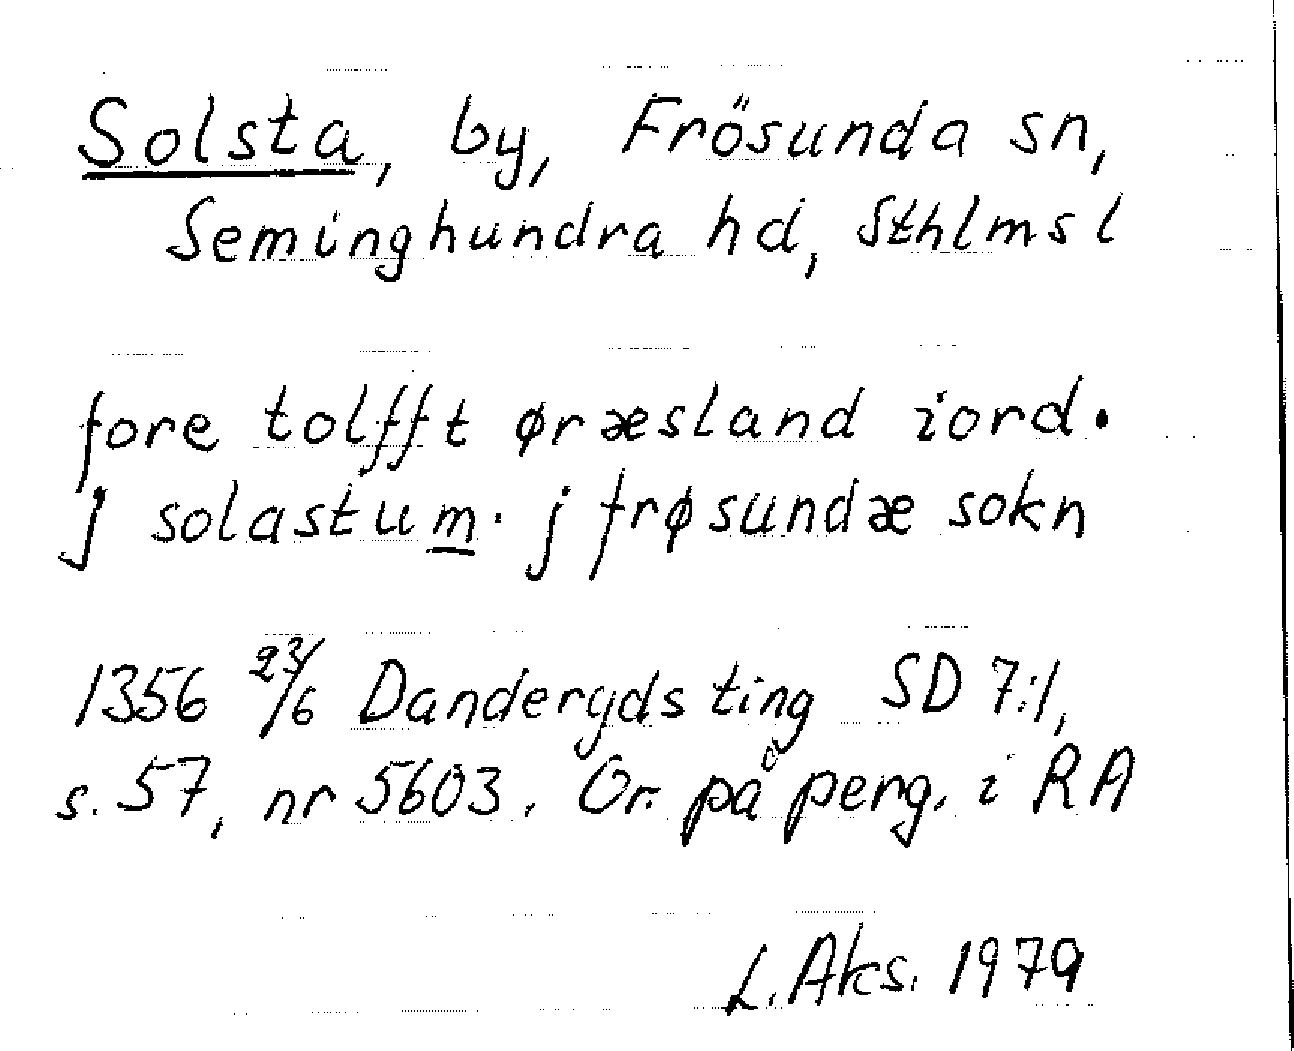 Solsta, by, Frösunda sn,
Seminghundra hd, Sthlms l
fore tolfft øræsland iord.
j solastum. j frøsundæ sokn
1356 23/6 Danderyds ting SD 7:1,
s. 57, nr 5603. Or. på perg. i RA
L. Aks. 1979